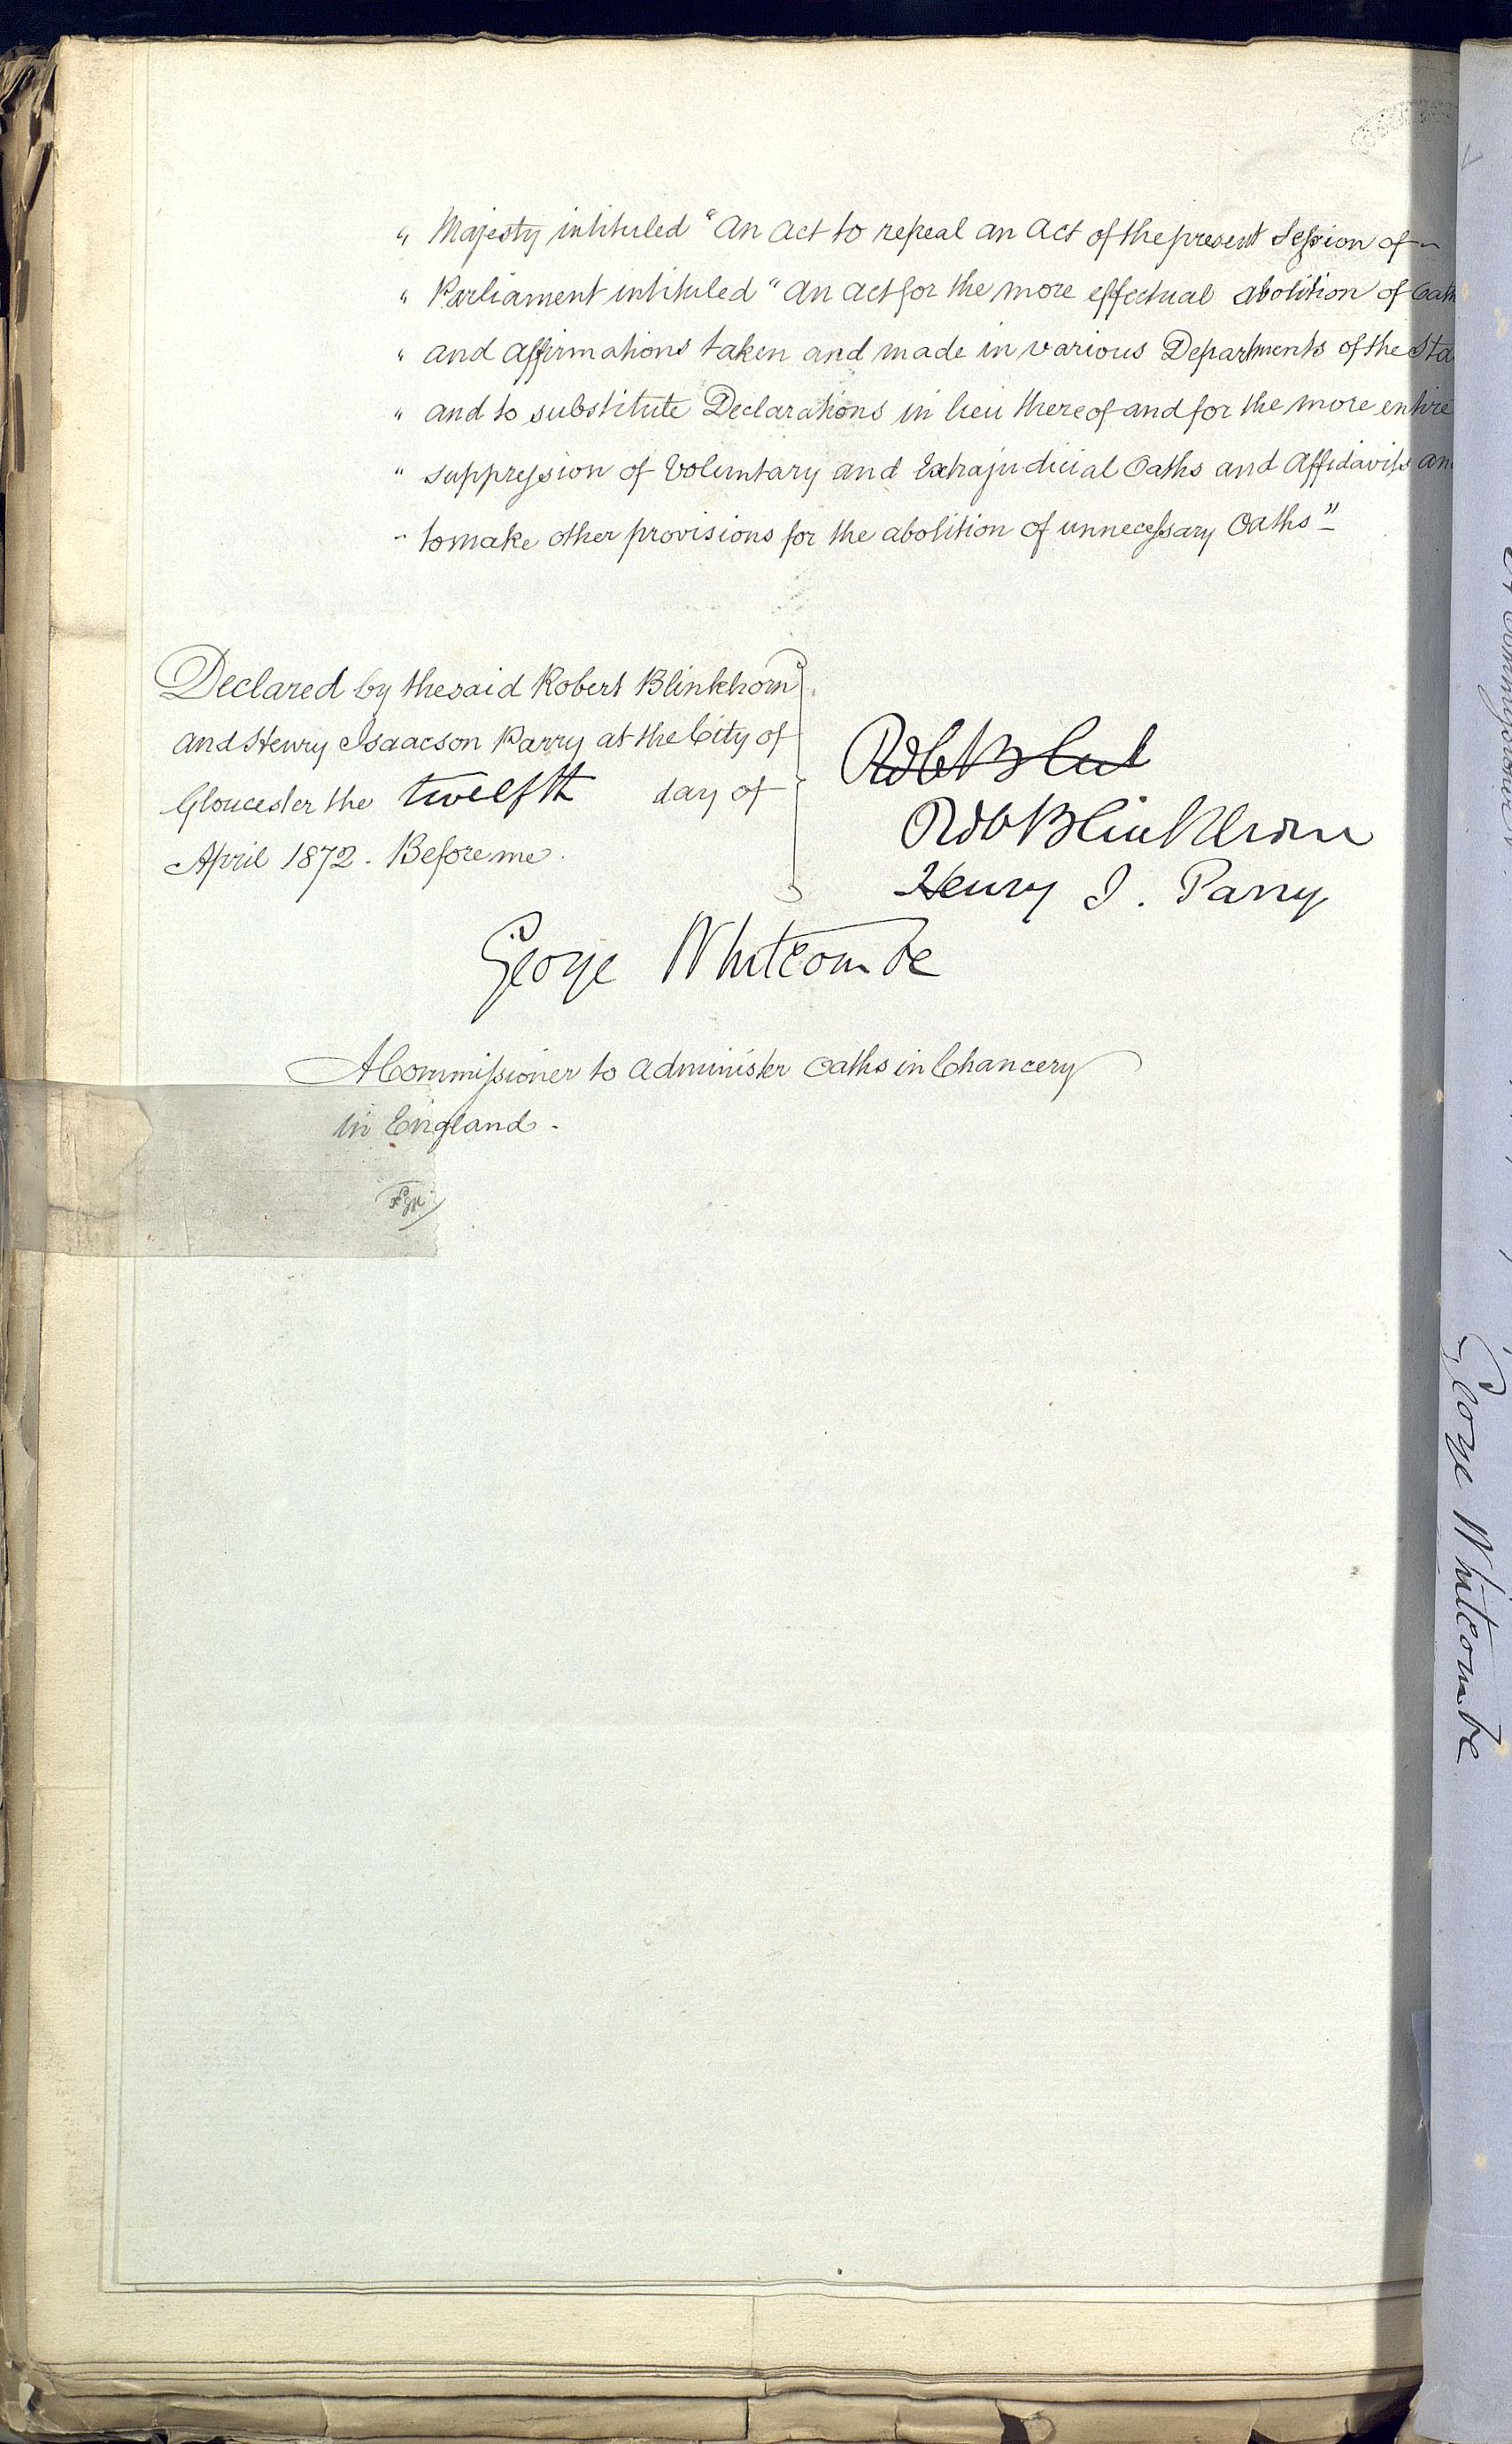 " Majesty intituled "An Act to repeal an Act of the present Session of
" Parliament intituled "An Act for the more effectual abolition of Oath
" and affirmations taken and made in various Departments of the Sta
" and to substitute Declarations in lieu thereof and for the more entire
" suppression of Voluntary and Extrajudicial Oaths and Affidavits an
" to make other provisions for the abolition of unnecessary Oaths"
Declared by the said Robert Blinkhorn
and Henry Isaacson Parry at the City of
Gloucester the twelfth day of
April 1872. Before me.
Robt Blinkhorn
Henry I. Parry
George Whitcombe
A Commissioner to administer Oaths in Chancery
in England.
George Whitcombe